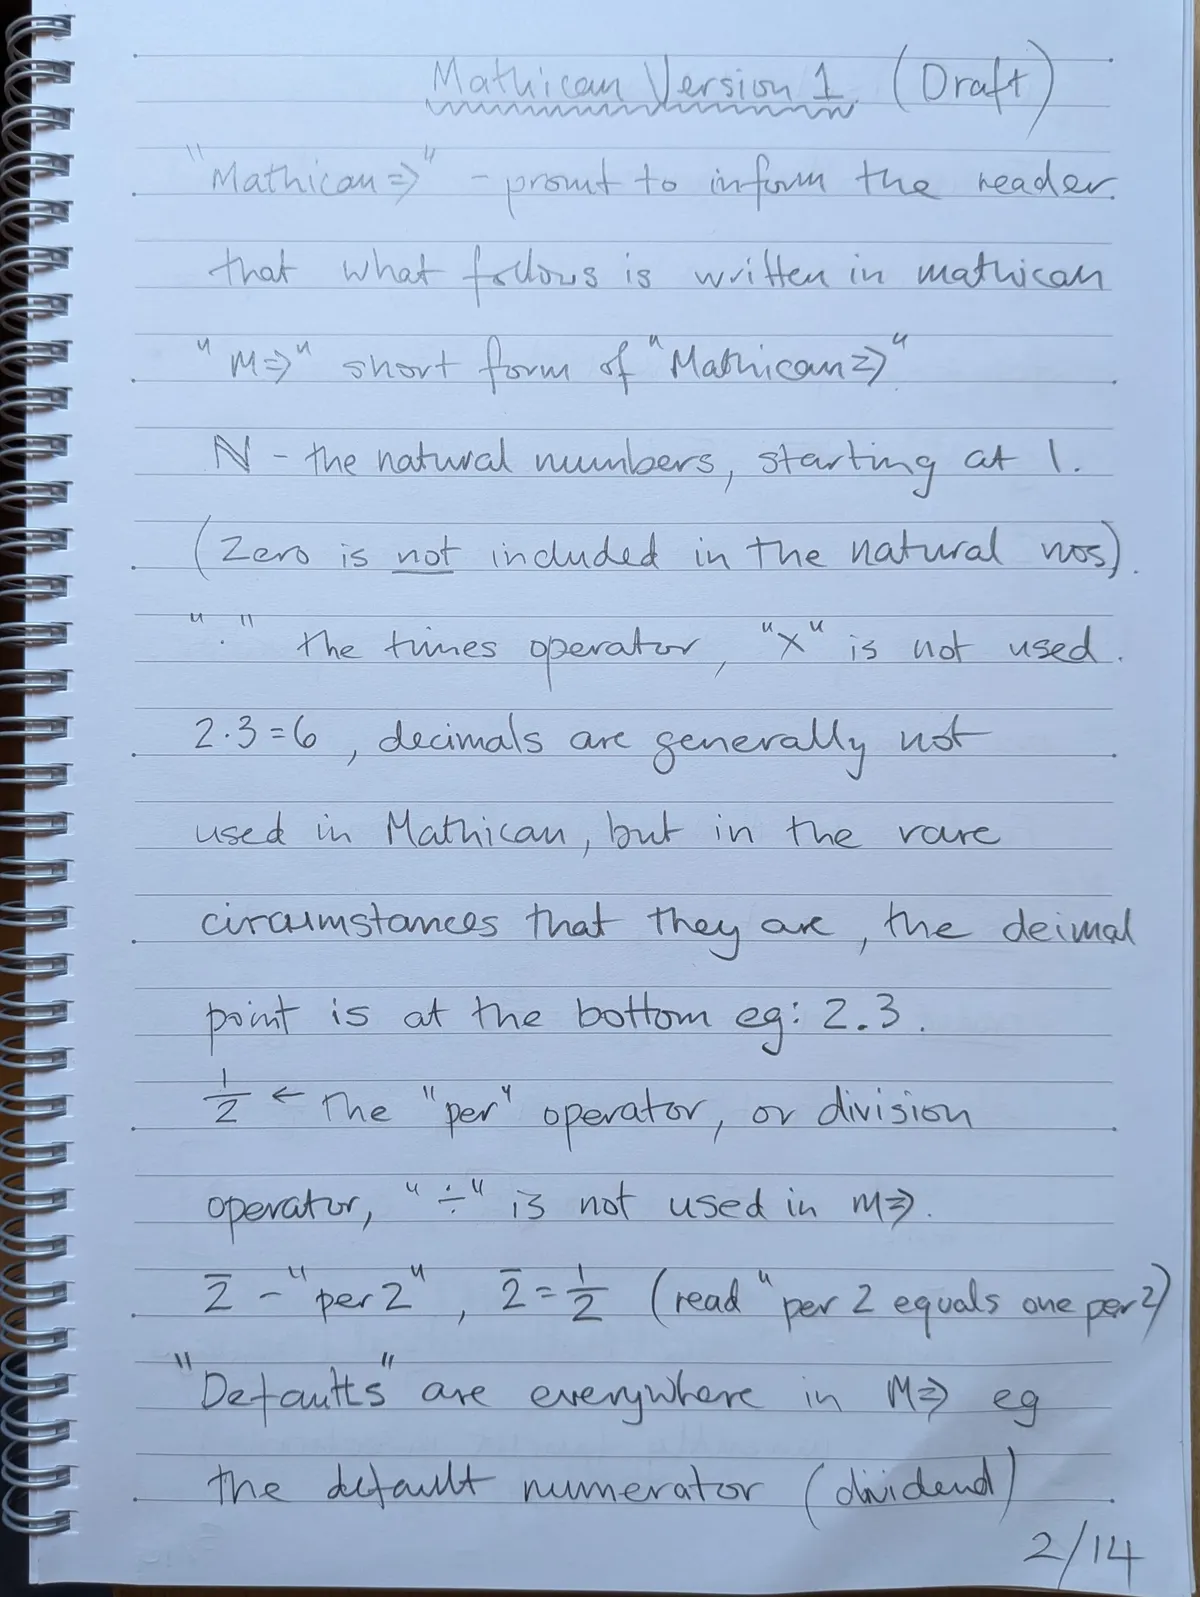 Mathican Version 1 (Draft)
"Mathican⇒" - promt to inform the reader
that what follows is written in mathican
"M⇒" short form of "Mathican⇒"
ℕ - the natural numbers, starting at 1.
(Zero is not included in the natural nos).
"·" the times operator, "×" is not used.
2·3=6, decimals are generally not
used in Mathican, but in the rare
circumstances that they are, the deimal
point is at the bottom eg: 2.3.
1/2 ← the "per" operator, or division
operator, "÷" is not used in M⇒.
2̅ - "per 2", 2̅ = 1/2 (read "per 2 equals one per 2)
"Defaults" are everywhere in M⇒ eg
the default numerator (dividend)
2/14